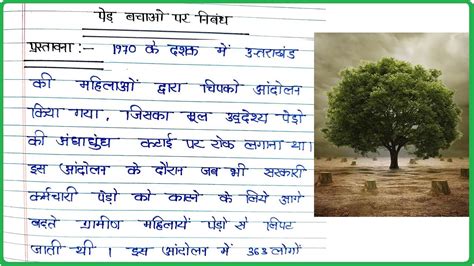 पेड़ बचाओ पर निबंध
प्रस्तावना :- 1970 के दशक में उत्तराखंड
की महिलाओं द्वारा चिपको आंदोलन
किया गया, जिसका मूल उद्देश्य पेड़ो
की अंधाधुंध कटाई पर रोक लगाना था।
इस आंदोलन के दौरान जब भी सरकारी
कर्मचारी पेड़ो को काटने के लिये आगे
बढते ग्रामीण महिलायें पेड़ो से लिपट
जाती थी। इस आंदोलन में 363 लोगों